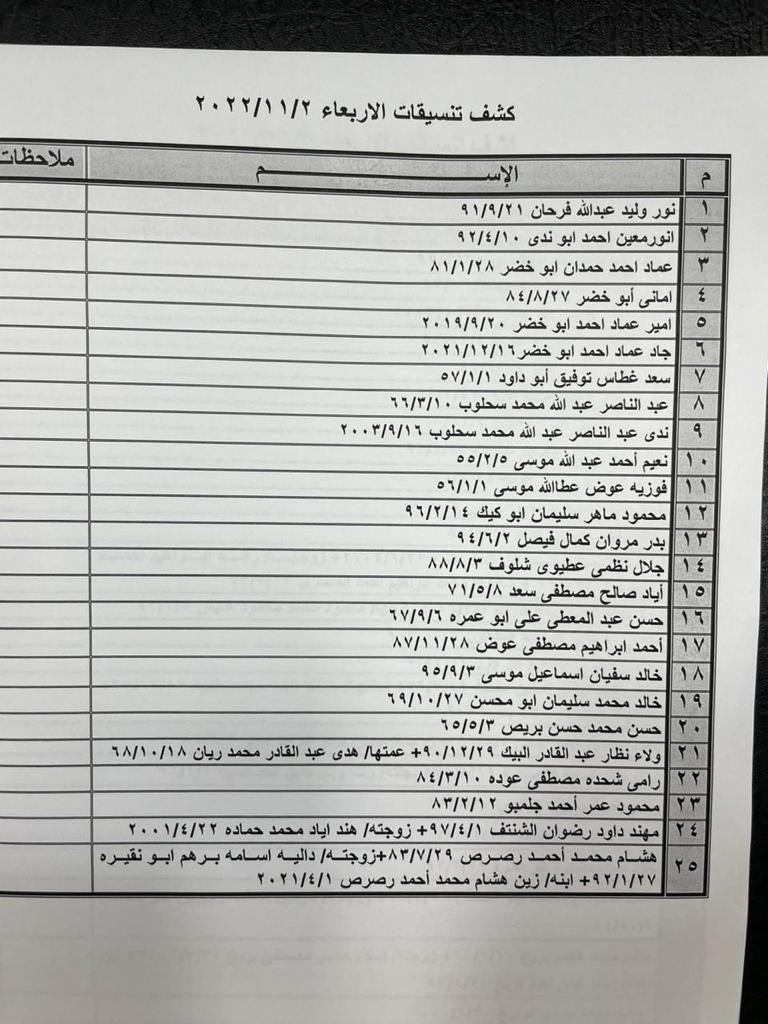 كشف تنسيقات الاربعاء ٢٠٢٢/١١/٢
م الإســـــــــم ملاحظات
١ نور وليد عبدالله فرحان ٩١/٩/٢١
٢ انورمعين احمد ابو ندى ٩٢/٤/١٠
٣ عماد احمد حمدان ابو خضر ٨١/١/٢٨
٤ امانى أبو خضر ٨٤/٨/٢٧
٥ امير عماد احمد ابو خضر ٢٠١٩/٩/٢٠
٦ جاد عماد احمد ابو خضر٢٠٢١/١٢/١٦
٧ سعد غطاس توفيق أبو داود ٥٧/١/١
٨ عبد الناصر عبد الله محمد سحلوب ٦٦/٣/١٠
٩ ندى عبد الناصر عبد الله محمد سحلوب ٢٠٠٣/٩/١٦
١٠ نعيم أحمد عبد الله موسى ٥٥/٢/٥
١١ فوزيه عوض عطاالله موسى ٥٦/١/١
١٢ محمود ماهر سليمان ابو كيك ٩٦/٢/١٤
١٣ بدر مروان كمال فيصل ٩٤/٦/٢
١٤ جلال نظمى عطيوى شلوف ٨٨/٨/٣
١٥ أياد صالح مصطفى سعد ٧١/٥/٨
١٦ حسن عبد المعطى على ابو عمره ٦٧/٩/٦
١٧ أحمد ابراهيم مصطفى عوض ٨٧/١١/٢٨
١٨ خالد سفيان اسماعيل موسى ٩٥/٩/٣
١٩ خالد محمد سليمان ابو محسن ٦٩/١٠/٢٧
٢٠ حسن محمد حسن بريص ٦٥/٥/٣
٢١ ولاء نظار عبد القادر البيك ٩٠/١٢/٢٩+ عمتها/ هدى عبد القادر محمد ريان ٦٨/١٠/١٨
٢٢ رامى شحده مصطفى عوده ٨٤/٣/١٠
٢٣ محمود عمر أحمد جلمبو ٨٣/٢/١٢
٢٤ مهند داود رضوان الشنتف ٩٧/٤/١+ زوجته/ هند اياد محمد حماده ٢٠٠١/٤/٢٢
٢٥ هشـام محمـد أحمـد رصـرص ٨٣/٧/٢٩+زوجتـه/ داليـه اسـامه بـرهم ابـو نقيـره
٩٢/١/٢٧+ ابنه/ زين هشام محمد أحمد رصرص ٢٠٢١/٤/١